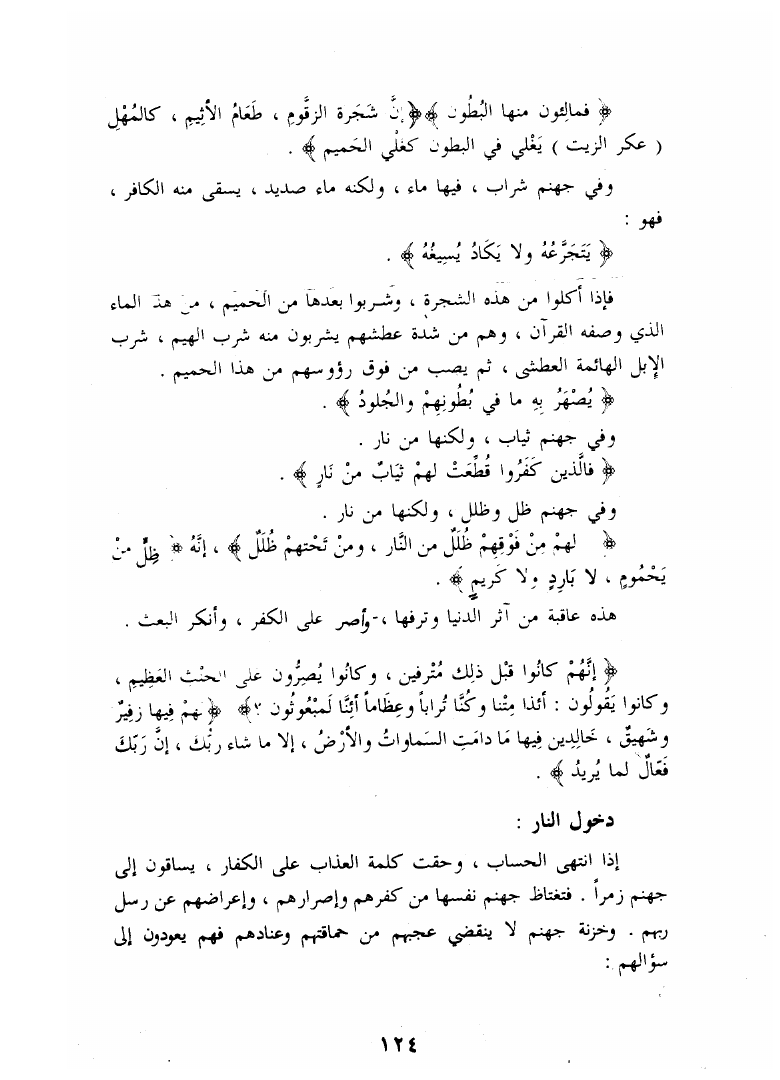 ﴿ فمالِئون منها البُطُون ﴾﴿ إنَّ شَجَرة الزقُّومِ ، طَعَامُ الأثِيمِ ، كالمُهْلِ
( عكر الزيت ) يَغْلي في البطون كغَلْي الحَميم ﴾ .
وفي جهنم شراب ، فيها ماء ، ولكنه ماء صديد ، يسقى منه الكافر ،
فهو :
﴿ يَتَجَرَّعُهُ ولا يَكَادُ يُسِيغُهُ ﴾ .
فإذا أكلوا من هذه الشجرة ، وشربوا بعدها من الحميم ، من هذا الماء
الذي وصفه القرآن ، وهم من شدة عطشهم يشربون منه شرب الهيم ، شرب
الإبل الهائمة العطشى ، ثم يصب من فوق رؤوسهم من هذا الحميم .
﴿ يُصْهَرُ بِهِ ما في بُطُونِهِمْ والجُلودُ ﴾ .
وفي جهنم ثياب ، ولكنها من نار .
﴿ فالَّذين كَفَرُوا قُطِّعَتْ لهمْ ثيَابٌ منْ نَارٍ ﴾ .
وفي جهنم ظل وظلل ، ولكنها من نار .
﴿ لهمْ مِنْ فَوْقِهِمْ ظُلَلٌ من النَّار ، ومنْ تَحْتهمْ ظُلَلٌ ﴾ ، إنَّهُ ﴿ ظِلٌّ منْ
يَحْمُومٍ ، لا بَارِدٍ ولا كَريم ﴾ .
هذه عاقبة من آثر الدنيا وترفها ، وأصر على الكفر ، وأنكر البعث .
﴿ إنَّهُمْ كانُوا قبْل ذلِك مُتْرفين ، وكانُوا يُصِرُّون على الحنْث العَظِيم ،
وكانوا يَقُولُون : أئذا مِتْنا وكُنَّا تُراباً وعِظَاماً أئِنَّا لَمبْعُوثُون ؟﴾ ﴿ لهمْ فِيها زفِيرٌ
وشَهِيقٌ ، خَالِدين فِيها مَا دامَتِ السَماواتُ والأرْضُ ، إلا ما شاء ربُّك ، إنَّ رَبّكَ
فَعّالٌ لما يُريدُ ﴾ .
دخول النار :
إذا انتهى الحساب ، وحقت كلمة العذاب على الكفار ، يساقون إلى
جهنم زمراً . فتغتاظ جهنم نفسها من كفرهم وإصرارهم ، وإعراضهم عن رسل
ربهم . وخزنة جهنم لا ينقضي عجبهم من حماقتهم وعنادهم فهم يعودون إلى
سؤالهم :
١٢٤